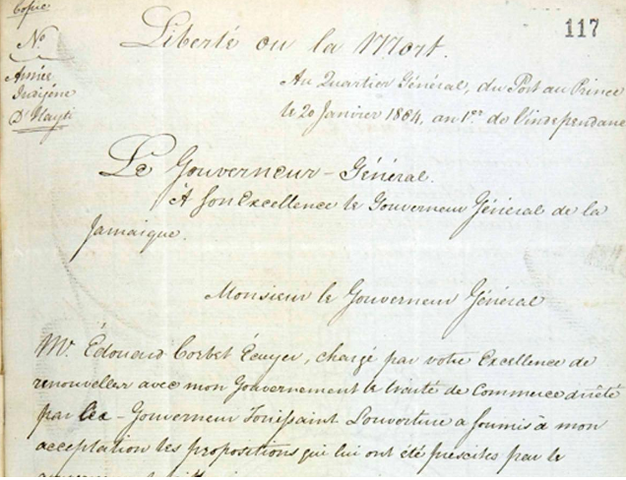 Copie
117
Nº
Liberté ou la Mort.
Armée
Indigène
D'Hayti
Au Quartier Général, du Port au Prince
le 20 Janvier 1804, an 1er de l'independance
Le Gouverneur-Général.
À Son Excellence le Gouverneur Général de la
Jamaique.
Monsieur le Gouverneur Général
Mr. Édouard Corbet Ecuyer, chargé par votre Excellence de
renouveller avec mon Gouvernement le traité de Commerce arrêté
par l'ex-Gouverneur Toussaint Louverture a soumis à mon
acceptation les propositions qui lui ont été prescites par le